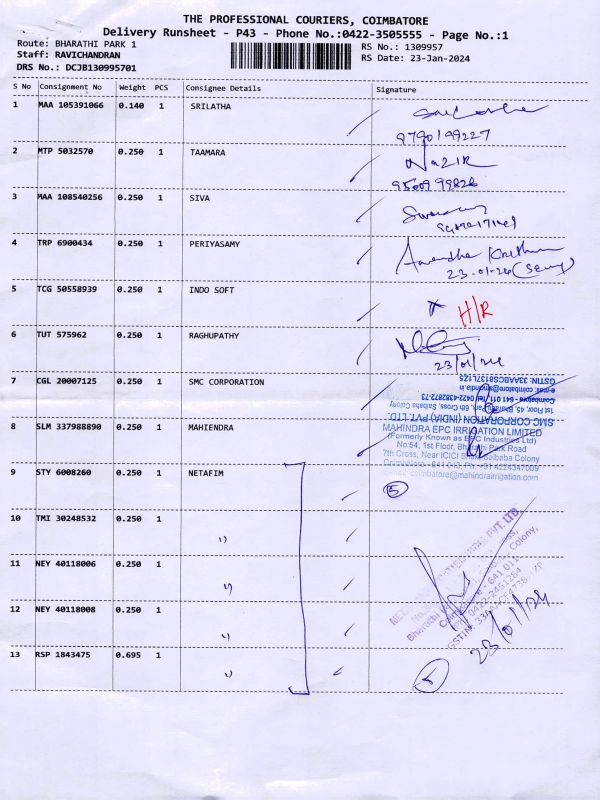 THE PROFESSIONAL COURIERS, COIMBATORE
Delivery Runsheet - P43 - Phone No.:0422-3505555 - Page No.:1
Route: BHARATHI PARK 1
Staff: RAVICHANDRAN
DRS No.: DCJB130995701
RS No.: 1309957
RS Date: 23-Jan-2024
S No Consignment No Weight PCS Consignee Details Signature
1 MAA 105391066 0.140 1 SRILATHA
9790199227
2 MTP 5032570 0.250 1 TAAMARA
Nazir
3 MAA 108540256 0.250 1 SIVA
4 TRP 6900434 0.250 1 PERIYASAMY
23-01-24
5 TCG 50558939 0.250 1 INDO SOFT H/R
6 TUT 575962 0.250 1 RAGHUPATHY
23/01/24
7 CGL 20007125 0.250 1 SMC CORPORATION
SMC CORPORATION (INDIA) PVT. LTD.
1st Floor, 45, Bharathi Park, 6th Cross, Saibaba Colony
Coimbatore - 641 011 Tel 0422-4382872-73
GSTIN: 33AABCS8137L1Z5
8 SLM 337988890 0.250 1 MAHIENDRA
MAHINDRA EPC IRRIGATION LIMITED
(Formerly Known as EPC Industries Ltd)
No:54, 1st Floor, Bharathi Park Road
7th Cross, Near ICICI Bank, Saibaba Colony
9 STY 6008260 0.250 1 NETAFIM 5
10 TMI 30248532 0.250 1 "
11 NEY 40118006 0.250 1 "
12 NEY 40118008 0.250 1 "
23/01/24
13 RSP 1843475 0.695 1 "